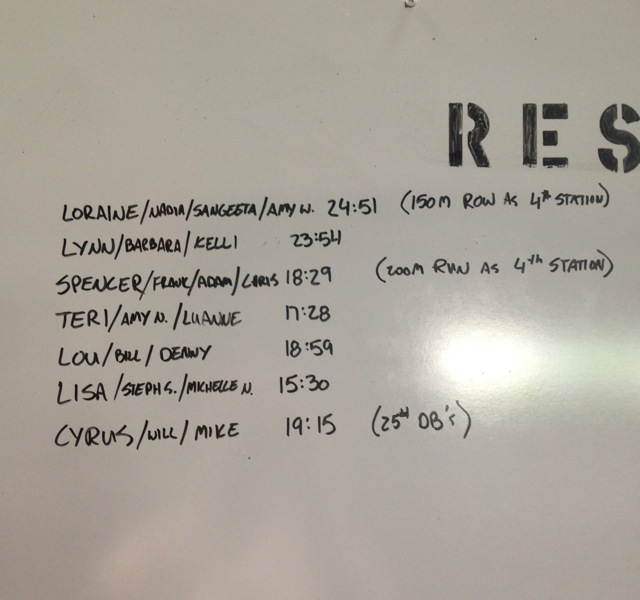 RES
LORAINE/NADIA/SANGEETA/AMY W. 24:51 (150M ROW AS 4th STATION)
LYNN/BARBARA/KELLI 23:54
SPENCER/FRANK/ADAM/CHRIS 18:29 (200M RUN AS 4th STATION)
TERI/AMY N./LUANNE 17:28
LOU/BILL/DENNY 18:59
LISA/STEPH S./MICHELLE N. 15:30
CYRUS/WILL/MIKE 19:15 (25# DB's)